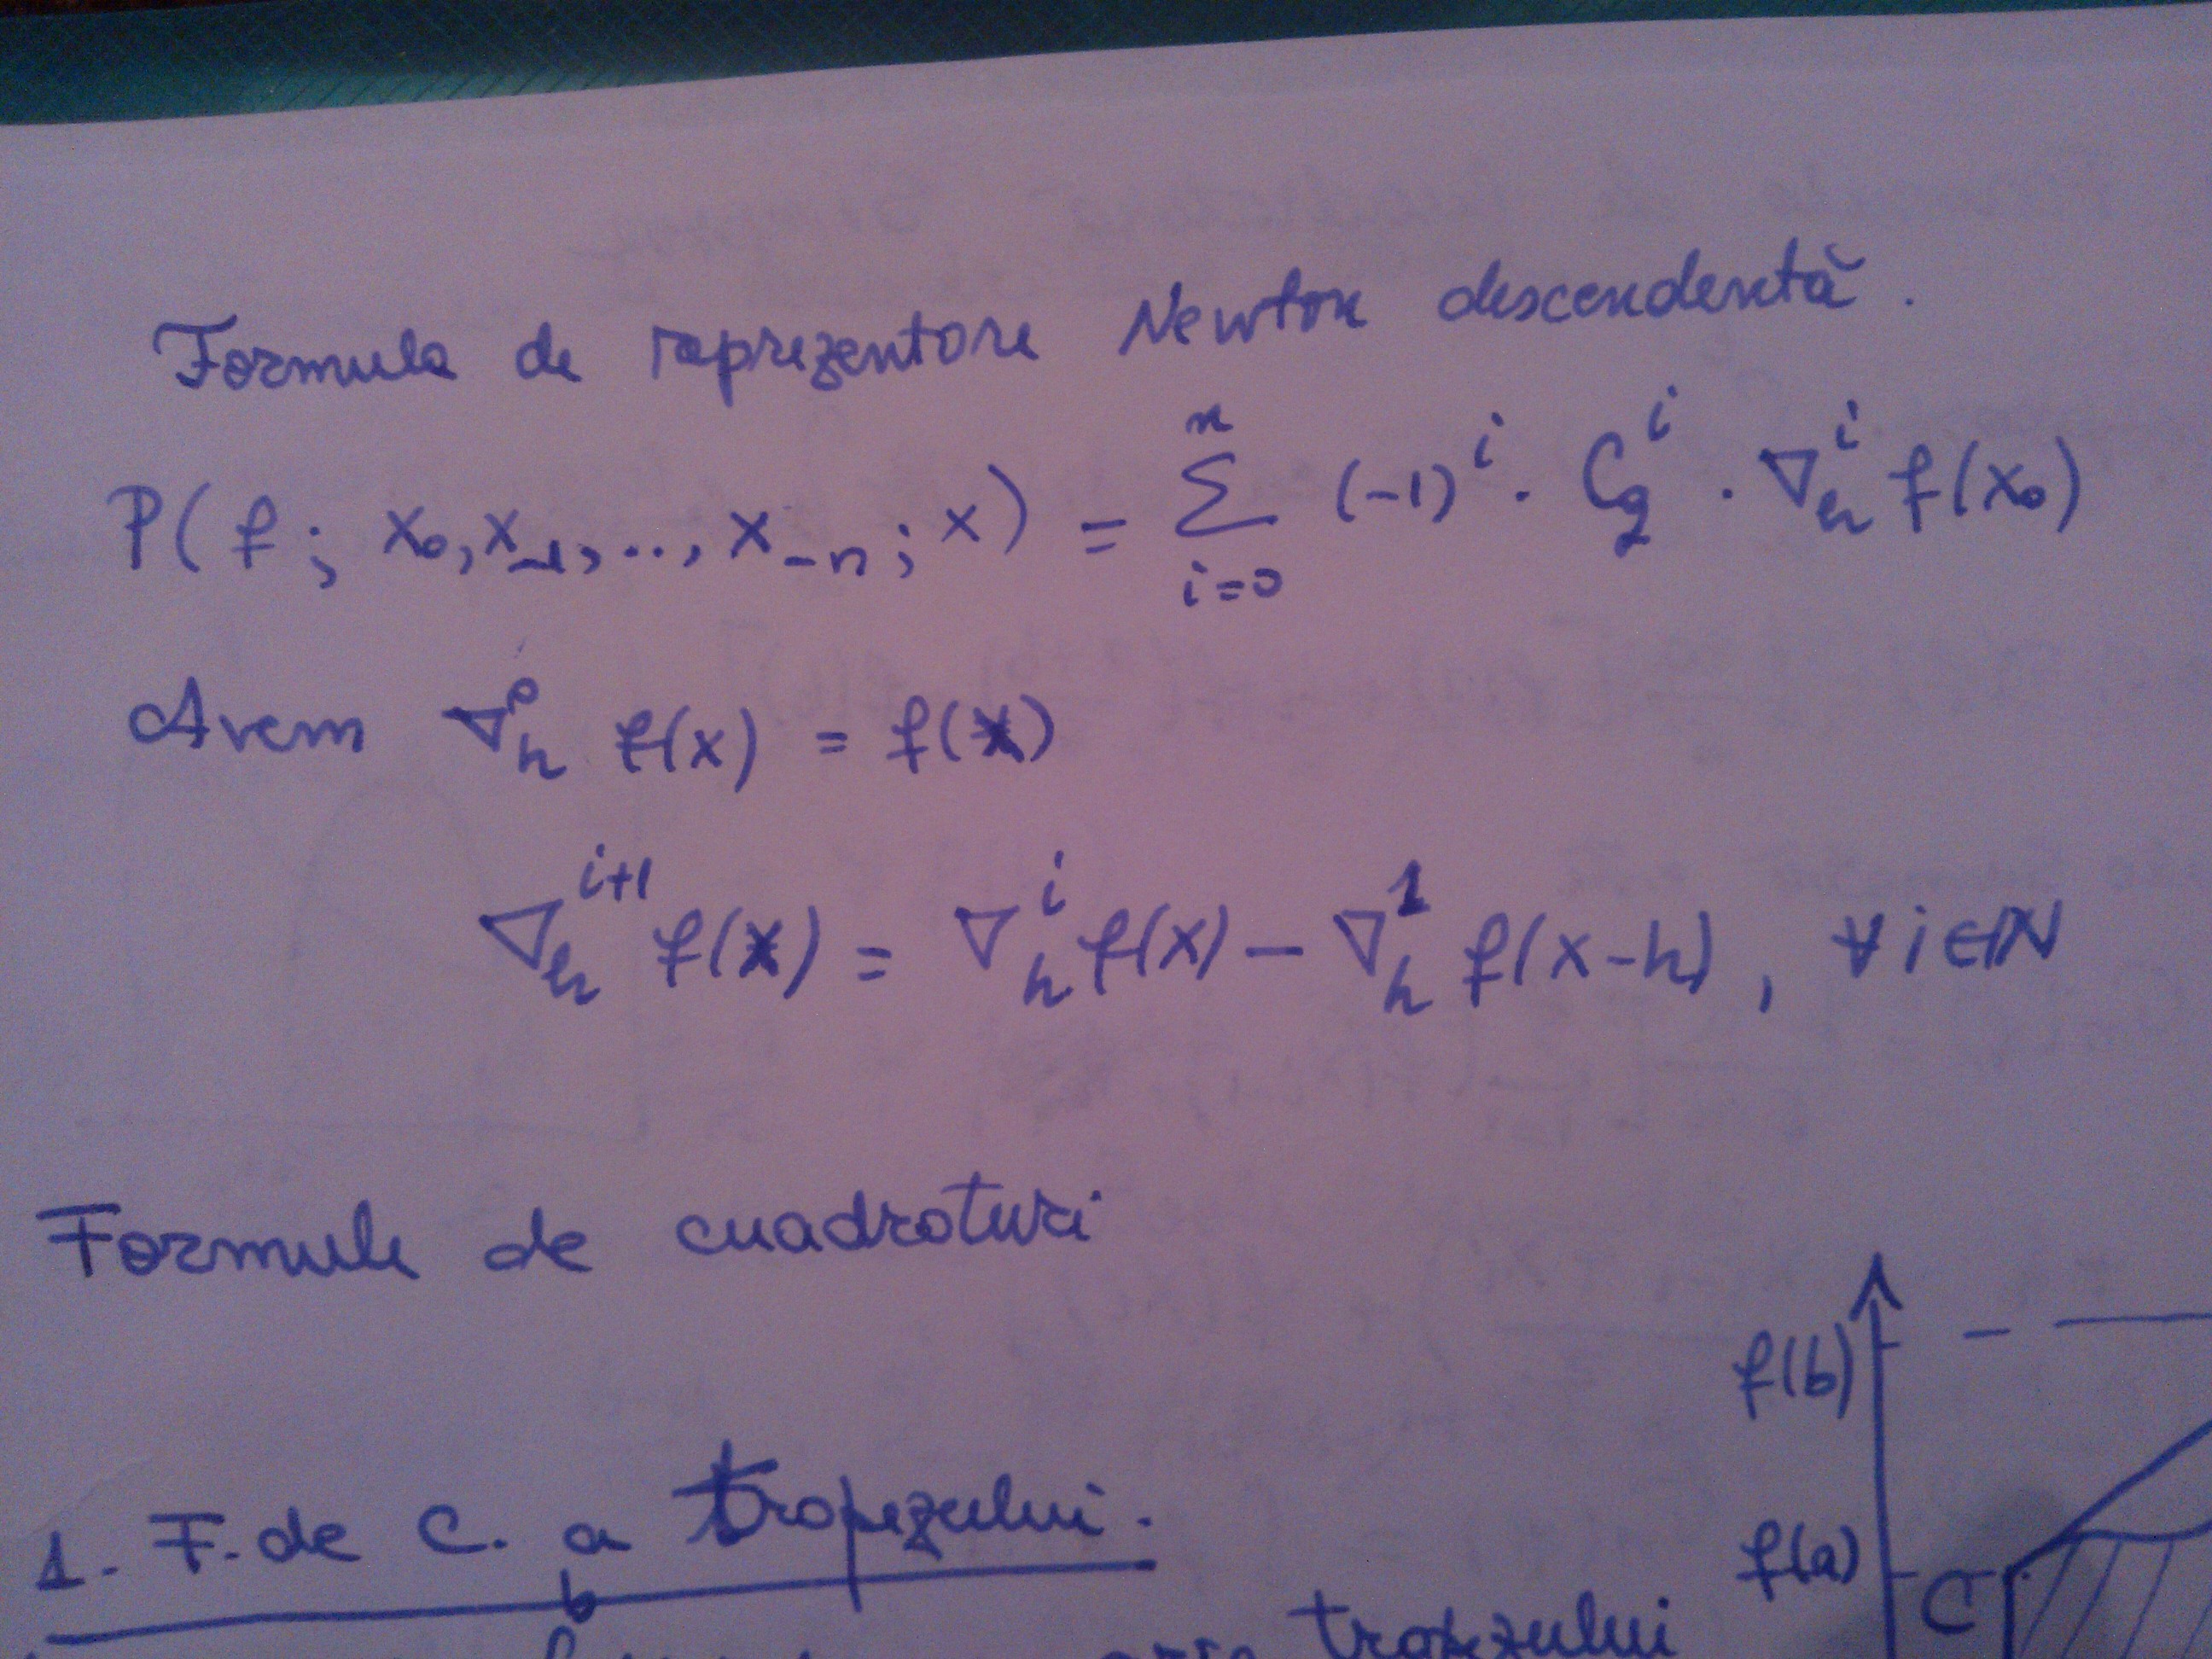 Formula de reprezentare Newton descendentă.
P(f; x₀, x₋₁, .., x₋ₙ; x) = Σ_{i=0}^{n} (-1)^i · C_q^i · ∇_h^i f(x₀)
Avem ∇_h^0 f(x) = f(x)
∇_h^{i+1} f(x) = ∇_h^i f(x) - ∇_h^1 f(x-h), ∀ i ∈ ℕ
Formule de cuadraturi
f(b)
1. F. de C. a trapezului.
f(a)
C
b
aria trapezului